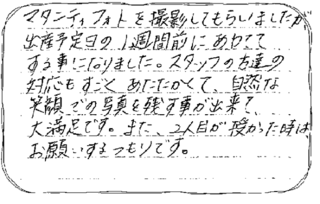 マタニティフォトを撮影してもらいましたが
出産予定日の1週間前にあわてて
する事になりました。スタッフの方達の
対応もすごくあたたかくて、自然な
笑顔での写真を残す事が出来て
大満足です。また、2人目が授かった時は
お願いするつもりです。